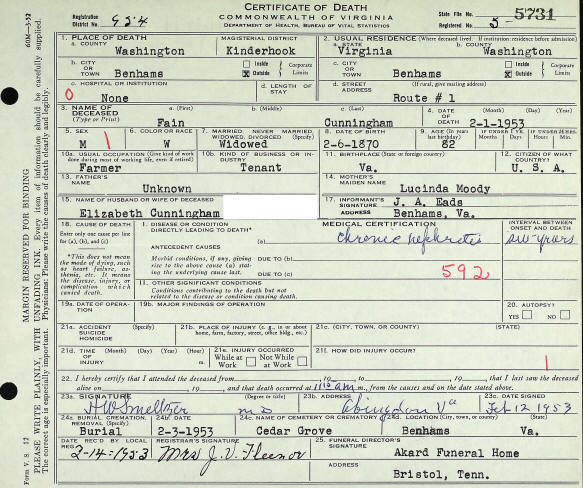 CERTIFICATE OF DEATH
COMMONWEALTH OF VIRGINIA
DEPARTMENT OF HEALTH, BUREAU OF VITAL STATISTICS
Registration District No. 954
State File No. 5731
Registered No. 5
1. PLACE OF DEATH
a. COUNTY Washington
MAGISTERIAL DISTRICT Kinderhook
2. USUAL RESIDENCE (Where deceased lived. If institution: residence before admission)
a. STATE Virginia
b. COUNTY Washington
b. CITY OR TOWN Benhams
Inside Outside Corporate Limits
c. CITY OR TOWN Benhams
Inside Outside Corporate Limits
c. HOSPITAL OR INSTITUTION None
d. LENGTH OF STAY
d. STREET ADDRESS (If rural, give mailing address) Route # 1
0
3. NAME OF DECEASED (Type or Print)
a. (First) Fain
b. (Middle)
c. (Last) Cunningham
4. DATE OF DEATH (Month) (Day) (Year) 2-1-1953
5. SEX M
6. COLOR OR RACE W
7. MARRIED, NEVER MARRIED, WIDOWED, DIVORCED (Specify) Widowed
8. DATE OF BIRTH 2-6-1870
9. AGE (In years last birthday) 82
IF UNDER 1 YR. Months Days
IF UNDER 24 HRS. Hours Min.
10a. USUAL OCCUPATION (Give kind of work done during most of working life, even if retired) Farmer
10b. KIND OF BUSINESS OR INDUSTRY Tenant
11. BIRTHPLACE (State or foreign country) Va.
12. CITIZEN OF WHAT COUNTRY? U. S. A.
13. FATHER'S NAME Unknown
14. MOTHER'S MAIDEN NAME Lucinda Moody
15. NAME OF HUSBAND OR WIFE OF DECEASED Elizabeth Cunningham
17. INFORMANT'S SIGNATURE J. A. Eads
ADDRESS Benhams, Va.
18. CAUSE OF DEATH
Enter only one cause per line for (a), (b), and (c)
*This does not mean the mode of dying, such as heart failure, asthenia, etc. It means the disease, injury, or complication which caused death.
MEDICAL CERTIFICATION
INTERVAL BETWEEN ONSET AND DEATH
I. DISEASE OR CONDITION DIRECTLY LEADING TO DEATH* (a) Chronic nephritis
ANTECEDENT CAUSES
Morbid conditions, if any, giving rise to the above cause (a) stating the underlying cause last.
DUE TO (b)
DUE TO (c)
592
II. OTHER SIGNIFICANT CONDITIONS
Conditions contributing to the death but not related to the disease or condition causing death.
19a. DATE OF OPERATION
19b. MAJOR FINDINGS OF OPERATION
20. AUTOPSY?
YES NO
21a. ACCIDENT SUICIDE HOMICIDE (Specify)
21b. PLACE OF INJURY (e. g., in or about home, farm, factory, street, office bldg., etc.)
21c. (CITY, TOWN, OR COUNTY) (STATE)
21d. TIME OF INJURY (Month) (Day) (Year) (Hour) m.
21e. INJURY OCCURRED
While at Work Not While at Work
21f. HOW DID INJURY OCCUR?
22. I hereby certify that I attended the deceased from 19 to 19, that I last saw the deceased
alive on 19, and that death occurred at m., from the causes and on the date stated above.
23a. SIGNATURE HW Smeltzer (Degree or title) MD
23b. ADDRESS Abingdon Va
23c. DATE SIGNED Feb 12 1953
24a. BURIAL, CREMATION, REMOVAL (Specify) Burial
24b. DATE 2-3-1953
24c. NAME OF CEMETERY OR CREMATORY Cedar Grove
24d. LOCATION (City, town, or county) (State) Benhams Va.
DATE REC'D BY LOCAL REG. 2-14-1953
REGISTRAR'S SIGNATURE Mrs J. V. Fleenor
25. FUNERAL DIRECTOR'S SIGNATURE Akard Funeral Home
ADDRESS Bristol, Tenn.
60M—5-52
MARGIN RESERVED FOR BINDING
PLEASE WRITE PLAINLY, WITH UNFADING INK. Every item of information should be carefully supplied.
The correct age is especially important. Physicians: Please write the causes of death clearly and legibly.
Form V. S. 12